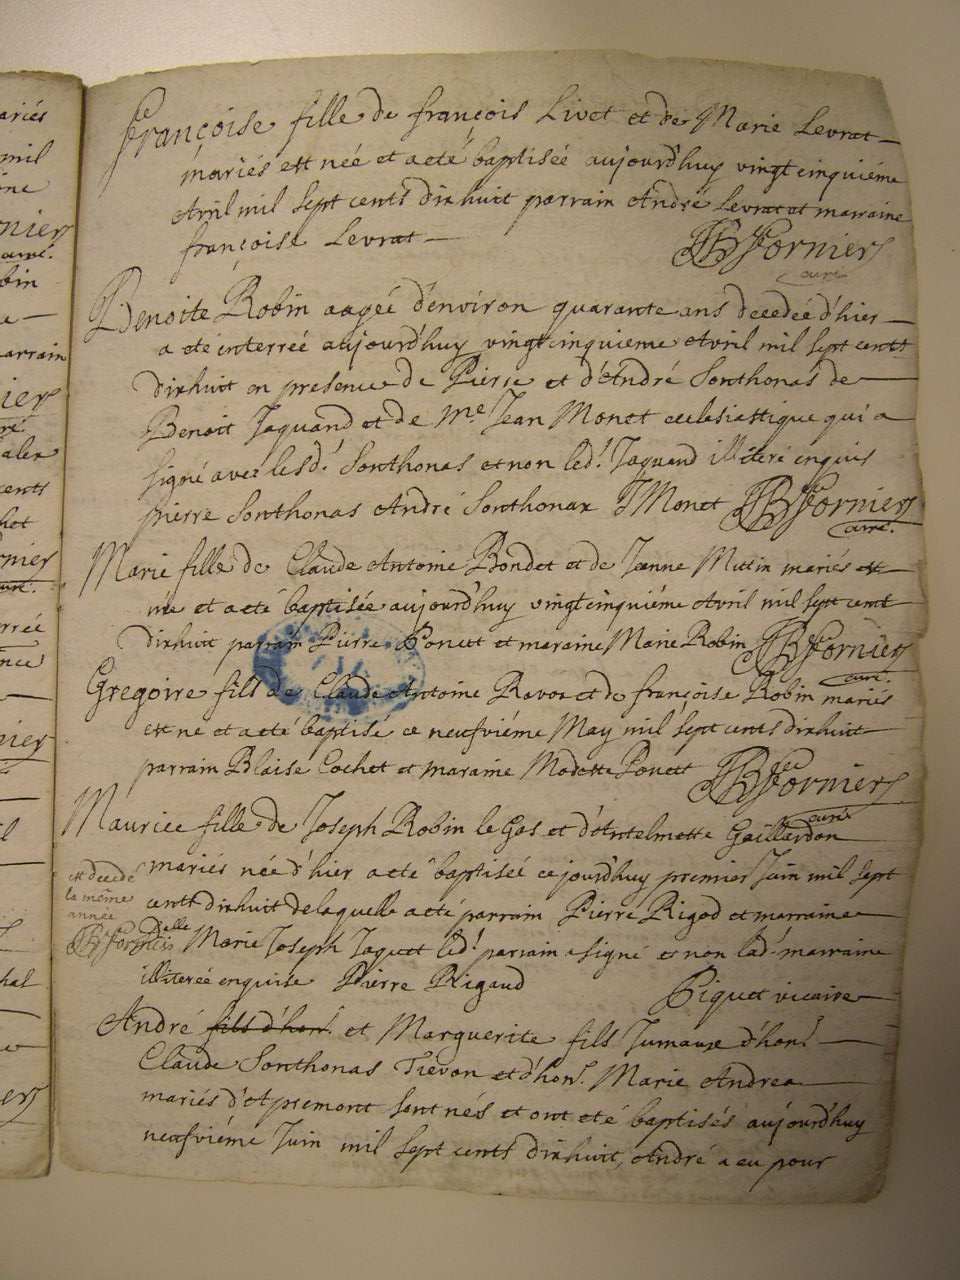 françoise fille de françois Livet et de Marie Levrat
mariés est née et a eté baptisée aujourd'huy vingtcinquiéme
Avril mil sept cents dixhuit parrain André Levrat et marraine
françoise Levrat
JB Fornier
curé
Benoite Robin aagée d'environ quarante ans decedée d'hier
a eté enterrée aujourd'huy vingtcinquieme Avril mil sept cents
dixhuit en presence de Pierre et d'André Sonthonas de
Benoit Jaquand et de Me. Jean Monet ecclesiastique qui a
signé avec lesd. Sonthonas et non led. Jaquand illiteré enquis
pierre Sonthonas André Sonthonax J Monet JB Fornier
curé.
Marie fille de Claude Antoine Bondet et de Janne Mutin mariés est
née et a eté baptisée aujourd'huy vingtcinquiéme Avril mil sept cent
dixhuit parrain Pierre Ponett et maraine Marie Robin JB Fornier
curé.
Gregoire fils de Claude Antoine Ravor et de françoise Robin mariés
est né et a eté baptisé ce neufviéme May mil sept cents dixhuit
parrain Blaise Cochet et maraine Modeste Ponett JB Fornier
curé
Maurice fille de Joseph Robin le Gos et d'Antelmette Gaillardon
mariés née d'hier a eté baptiseé cejourd'huy premier Juin mil sept
cents dixhuit de laquelle a eté parrain Pierre Rigod et marraine
Delle
Marie Joseph Jaquet led. parrain a signé et non lad. marraine
illitereé enquise Pierre Rigaud
Piquet vicaire
est decedé
la même
année
JB Fornier
André fils d'hon. et Marguerite fils Jumaux d'hon.
Claude Sonthonas Tievon et d'hon. Marie Andrea
mariés d'Apremont sont nés et ont eté baptisés aujourd'huy
neufviéme Juin mil sept cents dixhuit, André a eu pour